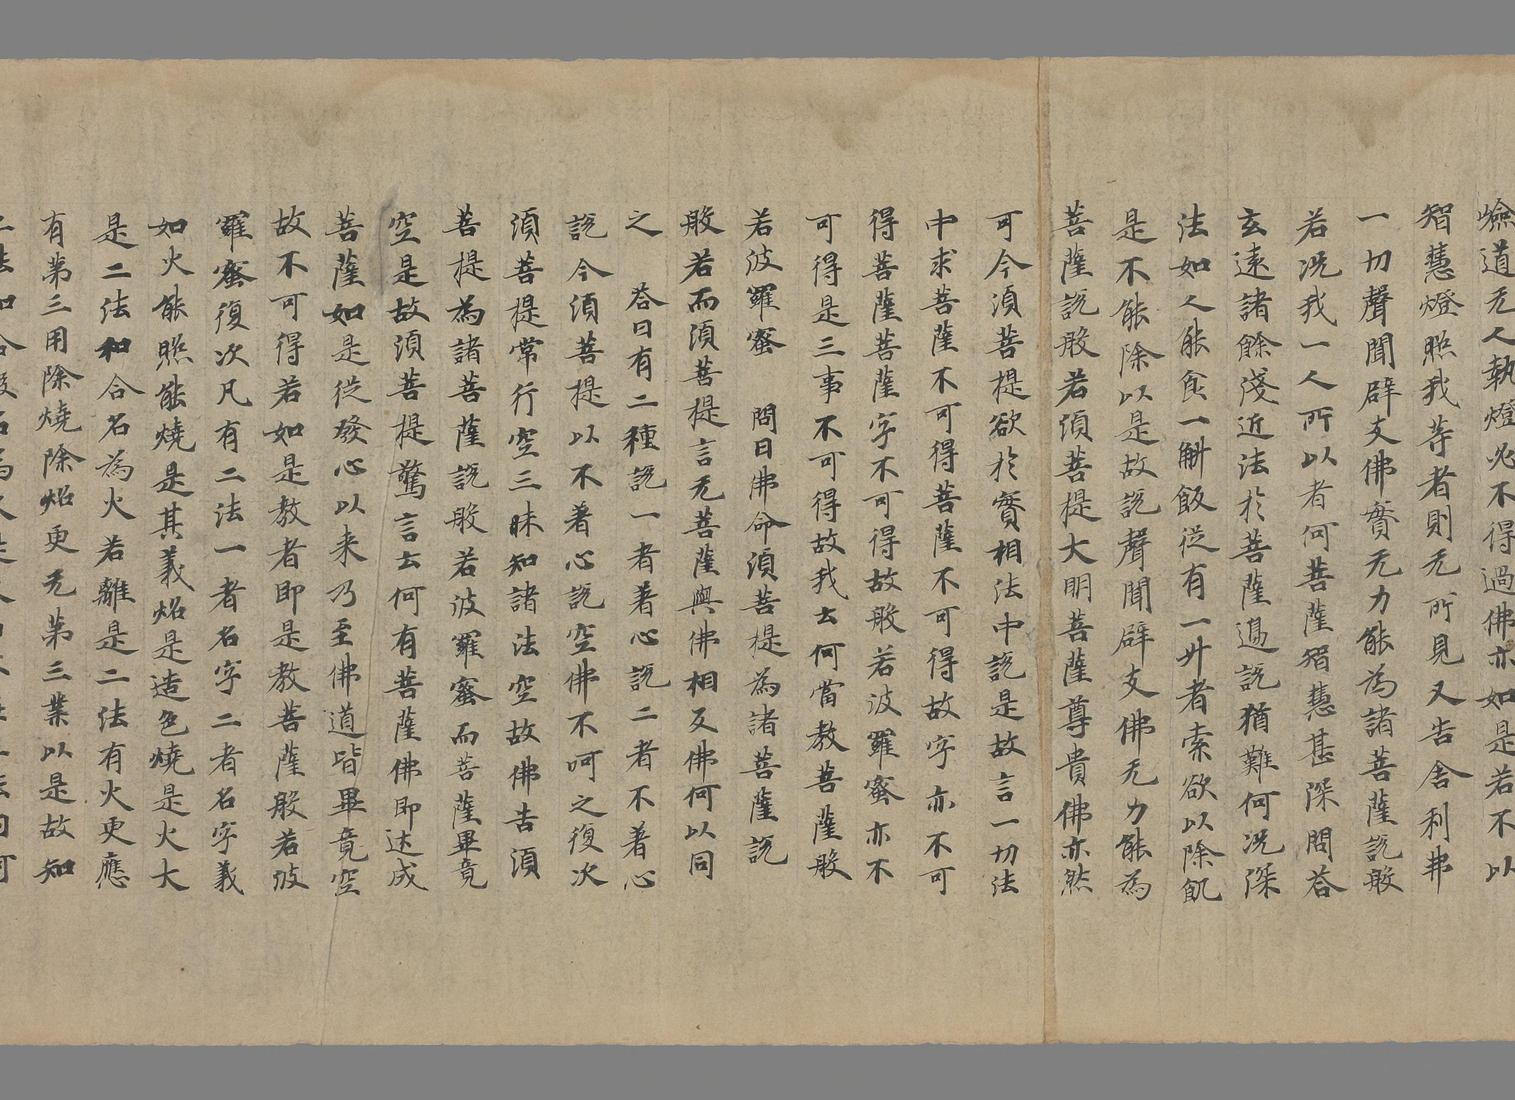 嶮道无人執燈必不得過佛亦如是若不以
智慧燈照我等者則无所見又告舍利弗
一切聲聞辟支佛實无力能為諸菩薩說般
若況我一人所以者何菩薩智慧甚深問荅
玄遠諸餘淺近法於菩薩邊說猶難何況深
法如人能食一斛飯從有一升者索欲以除飢
是不能除以是故說聲聞辟支佛无力能為
菩薩說般若須菩提大明菩薩尊貴佛亦然
可今須菩提欲於實相法中說是故言一切法
中求菩薩不可得菩薩不可得故字亦不可
得菩薩菩薩字不可得故般若波羅蜜亦不
可得是三事不可得故我云何當教菩薩般
若波羅蜜 問曰佛命須菩提為諸菩薩說
般若而須菩提言无菩薩與佛相反佛何以同
之 荅曰有二種說一者著心說二者不著心
說今須菩提以不著心說空佛不呵之復次
須菩提常行空三昧知諸法空故佛告須
菩提為諸菩薩說般若波羅蜜而菩薩畢竟
空是故須菩提驚言云何有菩薩佛即述成
菩薩如是從發心以来乃至佛道皆畢竟空
故不可得若如是教者即是教菩薩般若波
羅蜜復次凡有二法一者名字二者名字義
如火能照能燒是其義炤是造色燒是火大
是二法和合名為火若離是二法有火更應
有第三用除燒除炤更无第三業以是故知
二法和合假名為火